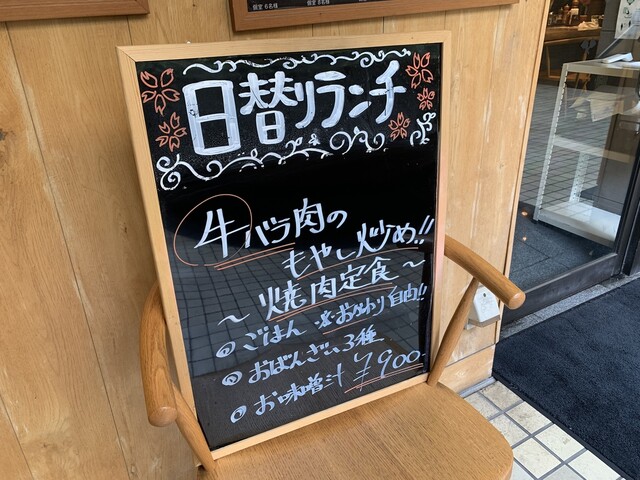 個室6名様
個室8名様
日替りランチ
牛バラ肉の
もやし炒め!!
〜焼肉定食〜
◎ごはん ※おかわり自由!!
◎おばんざい3種
◎お味噌汁 ¥900-